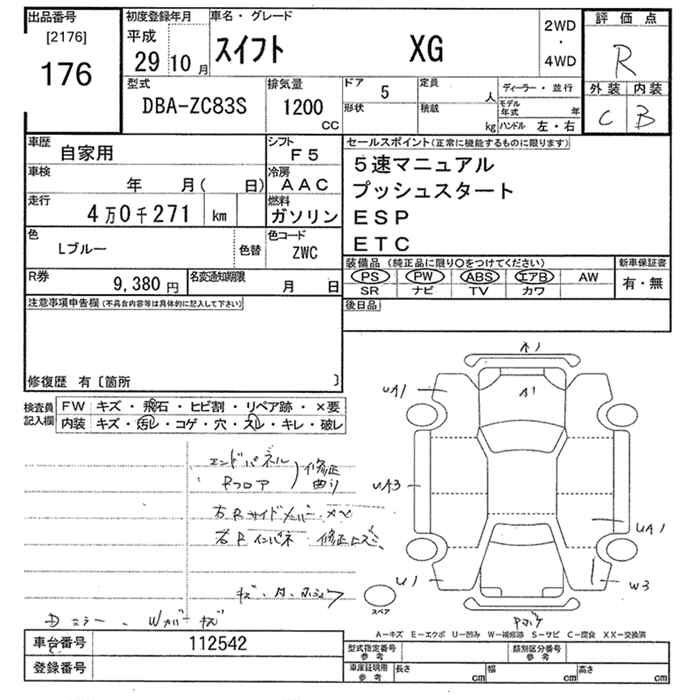 出品番号
[2176]
176
初度登録年月
平成
29 10 月
車名・グレード
スイフト XG
2WD
・
4WD
評価点
R
外装 内装
C B
型式
DBA-ZC83S
排気量
1200
CC
ドア 5
形状
定員 人
積載 kg
ディーラー・並行
モデル年式 年
ハンドル 左・右
車歴
自家用
シフト
F5
車検
年 月( 日)
冷房
AAC
走行
4万0千271 km
燃料
ガソリン
色
Lブルー
色替
色コード
ZWC
R券
9,380 円
名変通知期限
月 日
セールスポイント(正常に機能するものに限ります)
5速マニュアル
プッシュスタート
ESP
ETC
装備品 (純正品に限り○をつけてください)
PS PW ABS エアB AW
SR ナビ TV カワ
新車保証書
有・無
後日品
注意事項申告欄(不具合内容等は具体的に記入して下さい)
修復歴 有〔箇所 〕
検査員記入欄
FW キズ・飛石・ヒビ割・リペア跡・×要
内装 キズ・汚レ・コゲ・穴・スレ・キレ・破レ
エンドパネル
Rフロア
修正
曲り
右Rサイドメンバー
右Rインパネ 修正
Dミラー、Wカバー キズ
A1
A1
UA1
UA3
UA1
U1
W3
スペア
A-キズ E-エクボ U-凹み W-補修跡 S-サビ C-腐食 XX-交換済
車台番号 112542
登録番号
型式指定番号
参考
類別区分番号
参考
車庫証明用
参考
長さ cm 幅 cm 高さ cm